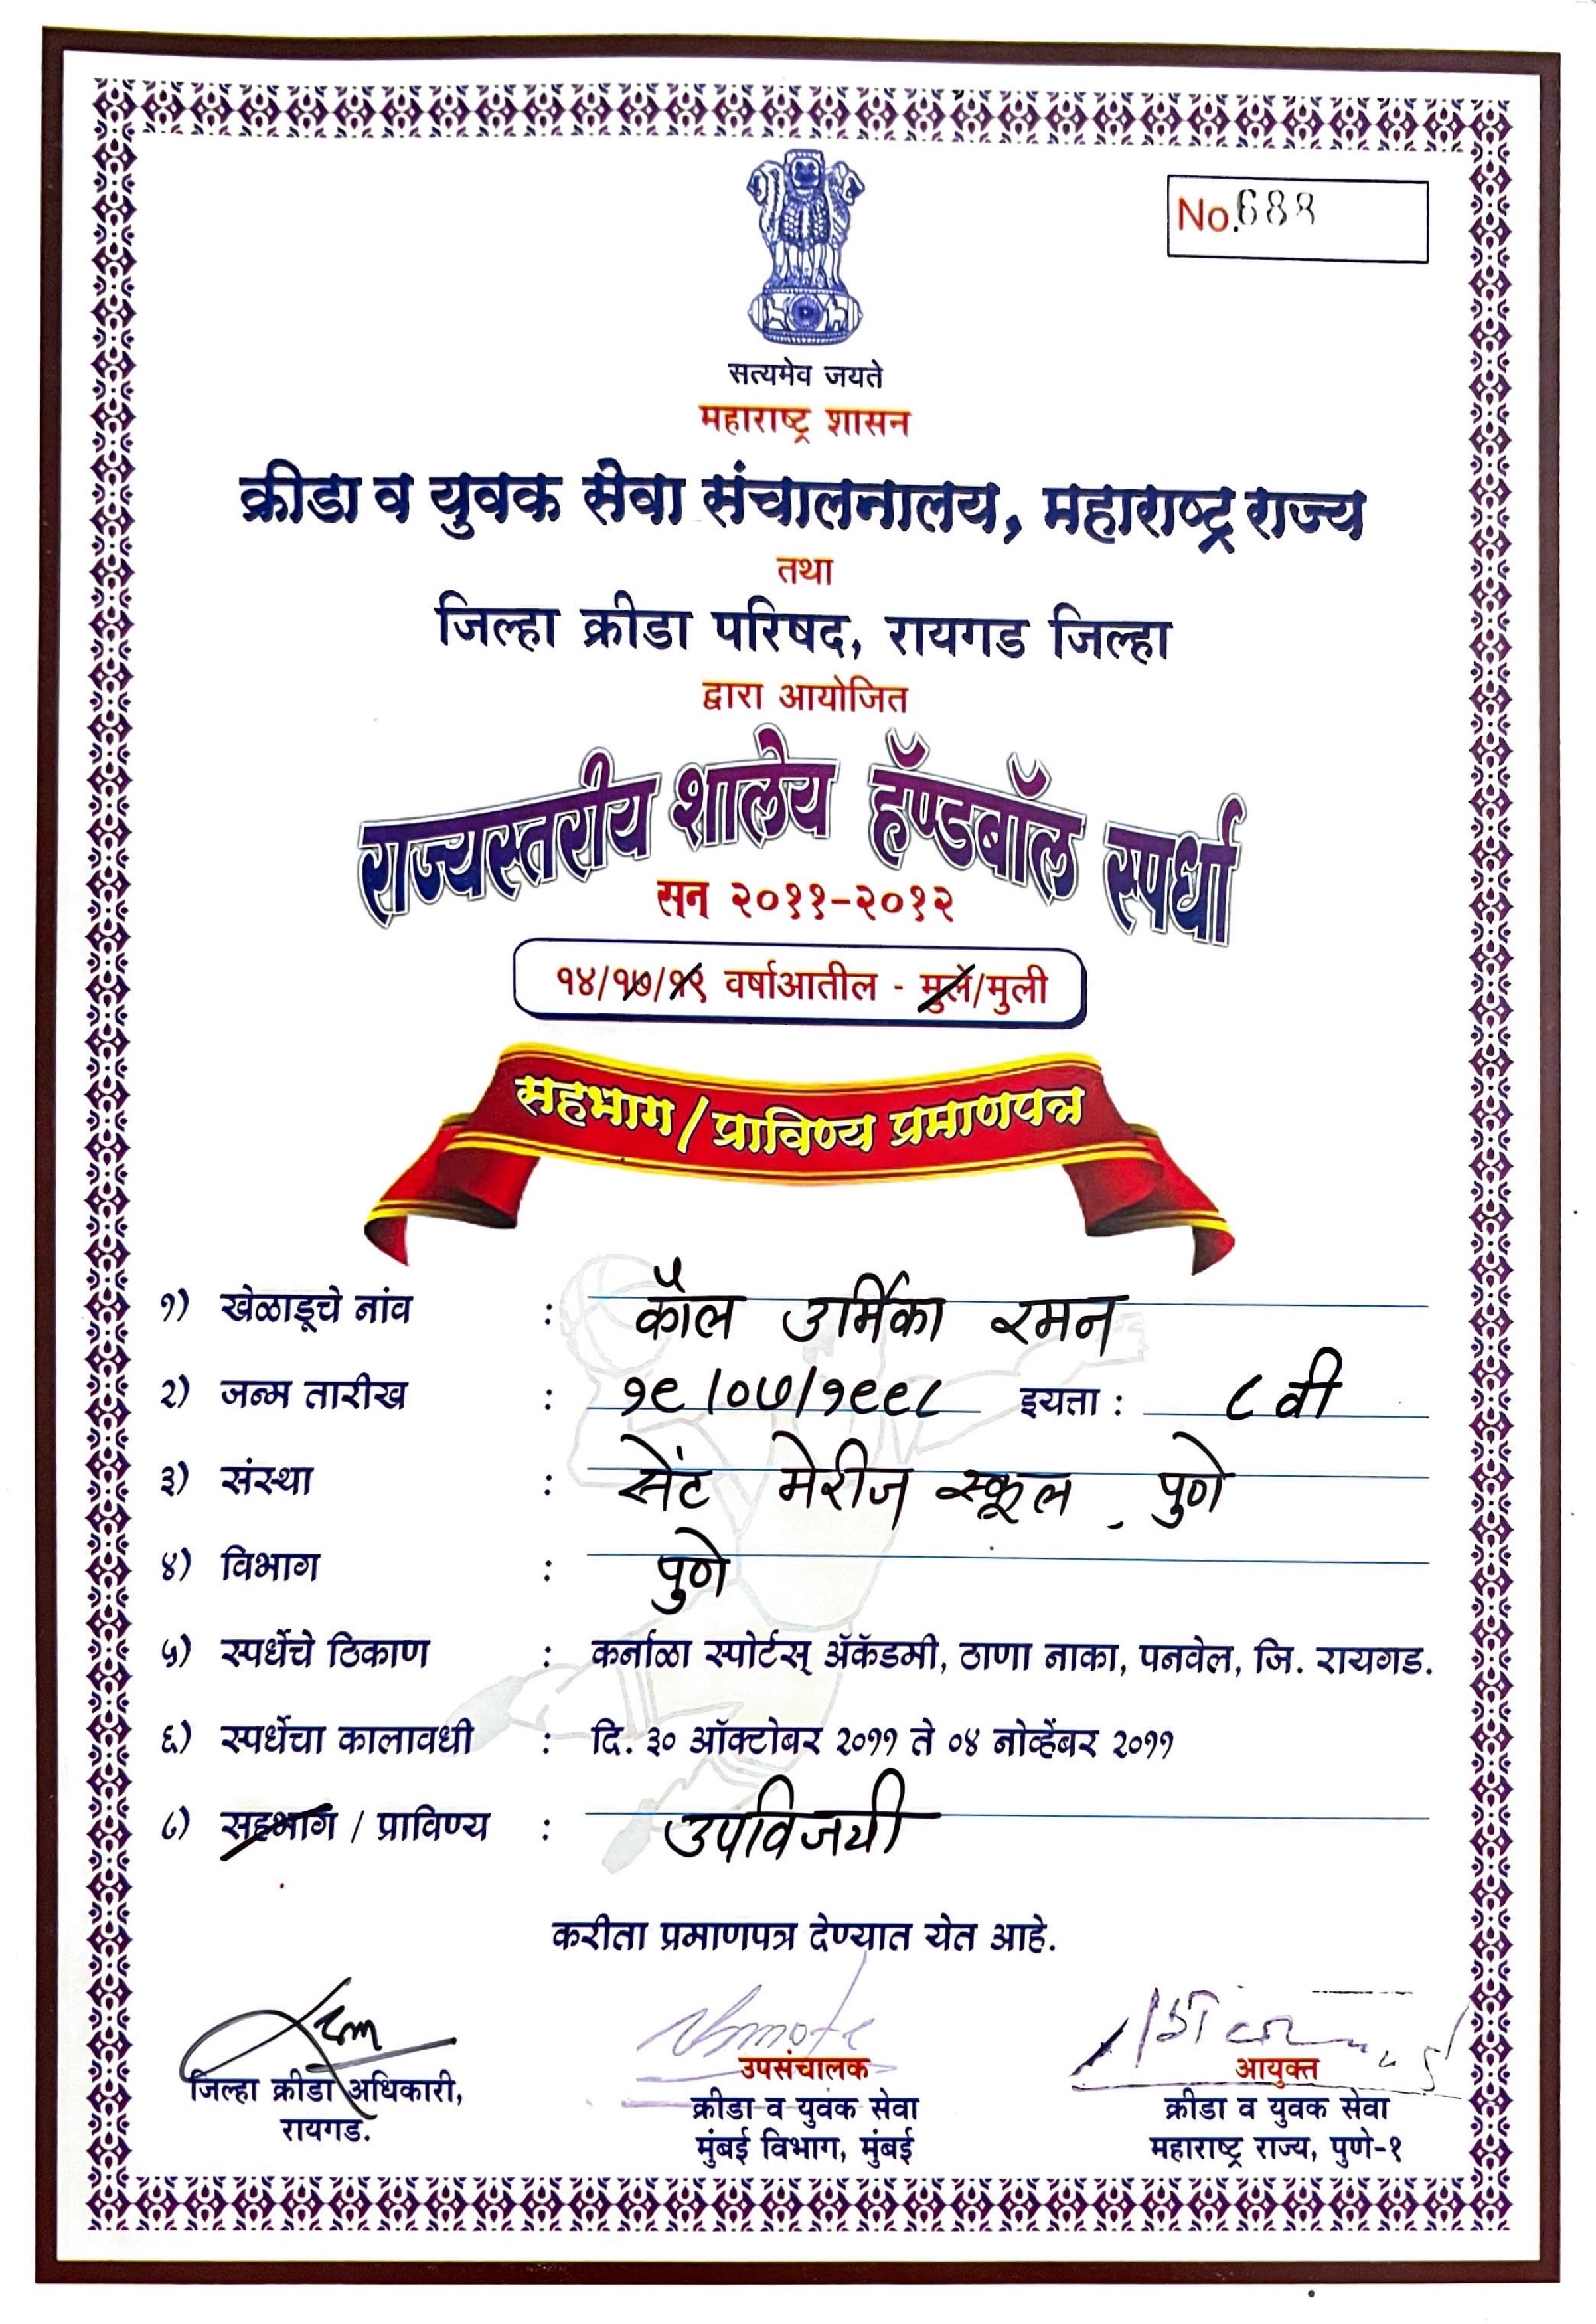 No.688
सत्यमेव जयते
महाराष्ट्र शासन
क्रीडा व युवक सेवा संचालनालय, महाराष्ट्र राज्य
तथा
जिल्हा क्रीडा परिषद, रायगड जिल्हा
द्वारा आयोजित
राज्यस्तरीय शालेय हॅण्डबॉल स्पर्धा
सन २०११-२०१२
१४/१७/१९ वर्षाआतील - मुले/मुली
सहभाग/प्राविण्य प्रमाणपत्र
१) खेळाडूचे नांव : कौल उर्मिका रमन
२) जन्म तारीख : १९/०७/१९९८ इयत्ता : ८ वी
३) संस्था : सेंट मेरीज स्कूल, पुणे
४) विभाग : पुणे
५) स्पर्धेचे ठिकाण : कर्नाळा स्पोर्टस् ॲकॅडमी, ठाणा नाका, पनवेल, जि. रायगड.
६) स्पर्धेचा कालावधी : दि. ३० ऑक्टोबर २०११ ते ०४ नोव्हेंबर २०११
८) सहभाग / प्राविण्य : उपविजयी
करीता प्रमाणपत्र देण्यात येत आहे.
जिल्हा क्रीडा अधिकारी,
रायगड.
उपसंचालक
क्रीडा व युवक सेवा
मुंबई विभाग, मुंबई
आयुक्त
क्रीडा व युवक सेवा
महाराष्ट्र राज्य, पुणे-१